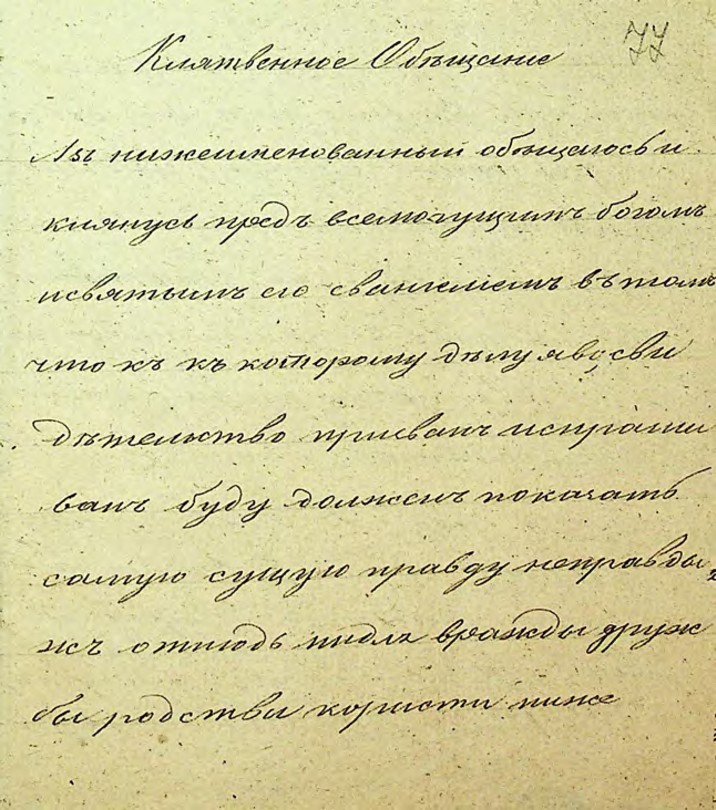 77
Клятвенное Обѣщание
Азъ нижеименованный обѣщаюсь и
клянусь предъ всемогущимъ богомъ
и святымъ его евангелиемъ в томъ
что къ къ которому дѣлу я во сви
дѣтельство призванъ и спраши
ванъ буду долженъ показать
самую сущую правду неправды
жъ отнюдь ни для вражды друж
бы родства користи ниже